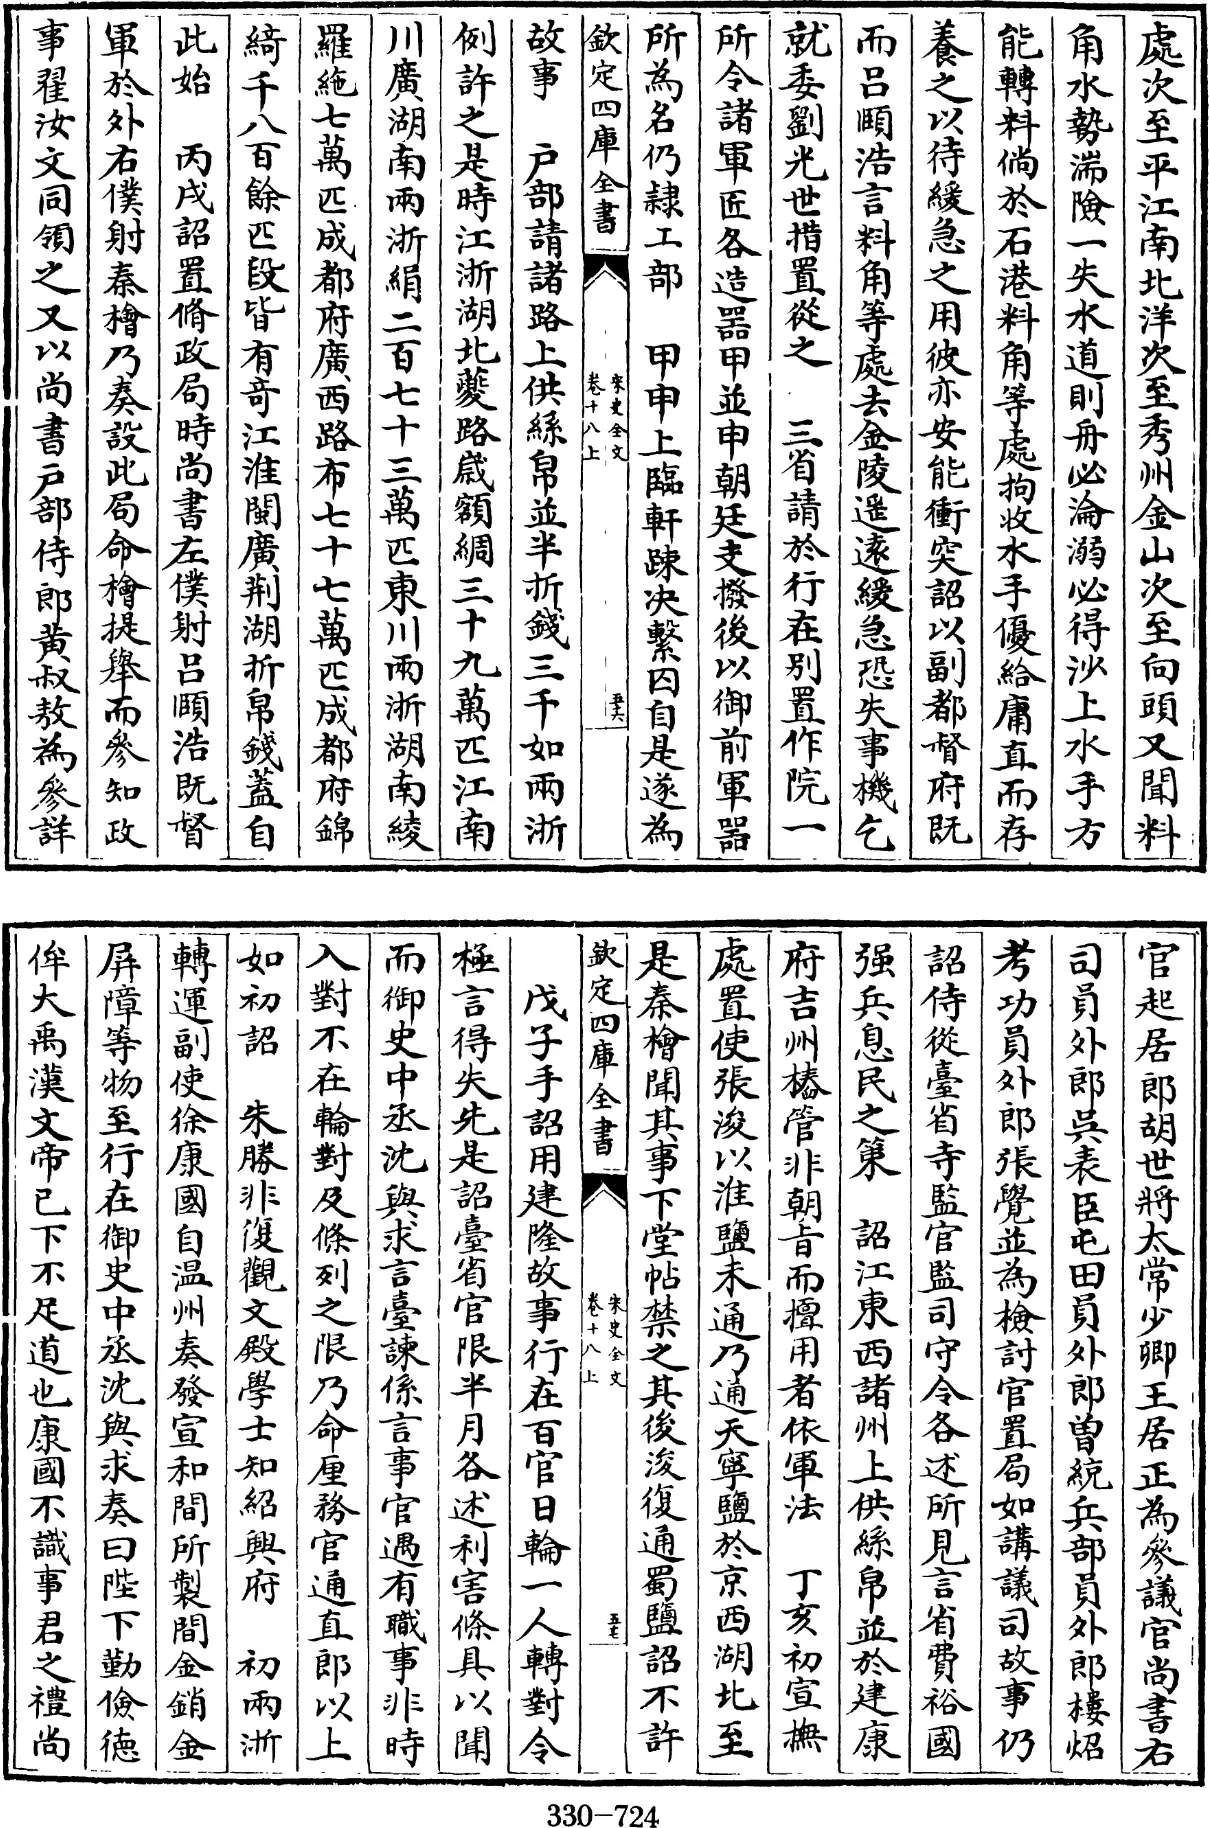 處次至平江南北洋次至秀州金山次至向頭又聞料
角水勢湍險一失水道則舟必淪溺必得沙上水手方
能轉料倘於石港料角等處拘收水手優給庸直而存
養之以待緩急之用彼亦安能衝突詔以副都督府既
而呂頤浩言料角等處去金陵遥遠緩急恐失事機乞
就委劉光世措置從之　三省請於行在别置作院一
所令諸軍匠各造器甲並申朝廷支撥後以御前軍器
所為名仍隷工部　甲申上臨軒疎决繫囚自是遂為
欽定四庫全書　宋史全文卷十八上　五十六
故事　戸部請諸路上供絲帛並半折錢三千如兩浙
例許之是時江浙湖北夔路嵗額綢三十九萬匹江南
川廣湖南兩浙絹二百七十三萬匹東川兩浙湖南綾
羅絁七萬匹成都府廣西路布七十七萬匹成都府錦
綺千八百餘匹段皆有竒江淮閩廣荆湖折帛錢蓋自
此始　丙戌詔置脩政局時尚書左僕射呂頤浩既督
軍於外右僕射秦檜乃奏設此局命檜提舉而參知政
事翟汝文同領之又以尚書戸部侍郎黄叔敖為參詳
官起居郎胡世將太常少卿王居正為參議官尚書右
司員外郎吳表臣屯田員外郎曾統兵部員外郎樓炤
考功員外郎張觷並為檢討官置局如講議司故事仍
詔侍從臺省寺監官監司守令各述所見言省費裕國
强兵息民之策　詔江東西諸州上供絲帛並於建康
府吉州樁管非朝旨而擅用者依軍法　丁亥初宣撫
處置使張浚以淮鹽未通乃通天寧鹽於京西湖北至
是秦檜聞其事下堂帖禁之其後浚復通蜀鹽詔不許
欽定四庫全書　宋史全文卷十八上　五十七
戊子手詔用建隆故事行在百官日輪一人轉對令
極言得失先是詔臺省官限半月各述利害條具以聞
而御史中丞沈與求言臺諫係言事官遇有職事非時
入對不在輪對及條列之限乃命厘務官通直郎以上
如初詔　朱勝非復觀文殿學士知紹興府　初兩浙
轉運副使徐康國自温州奏發宣和間所製間金銷金
屏障等物至行在御史中丞沈與求奏曰陛下勤儉德
侔大禹漢文帝已下不足道也康國不識事君之禮尚
330-724